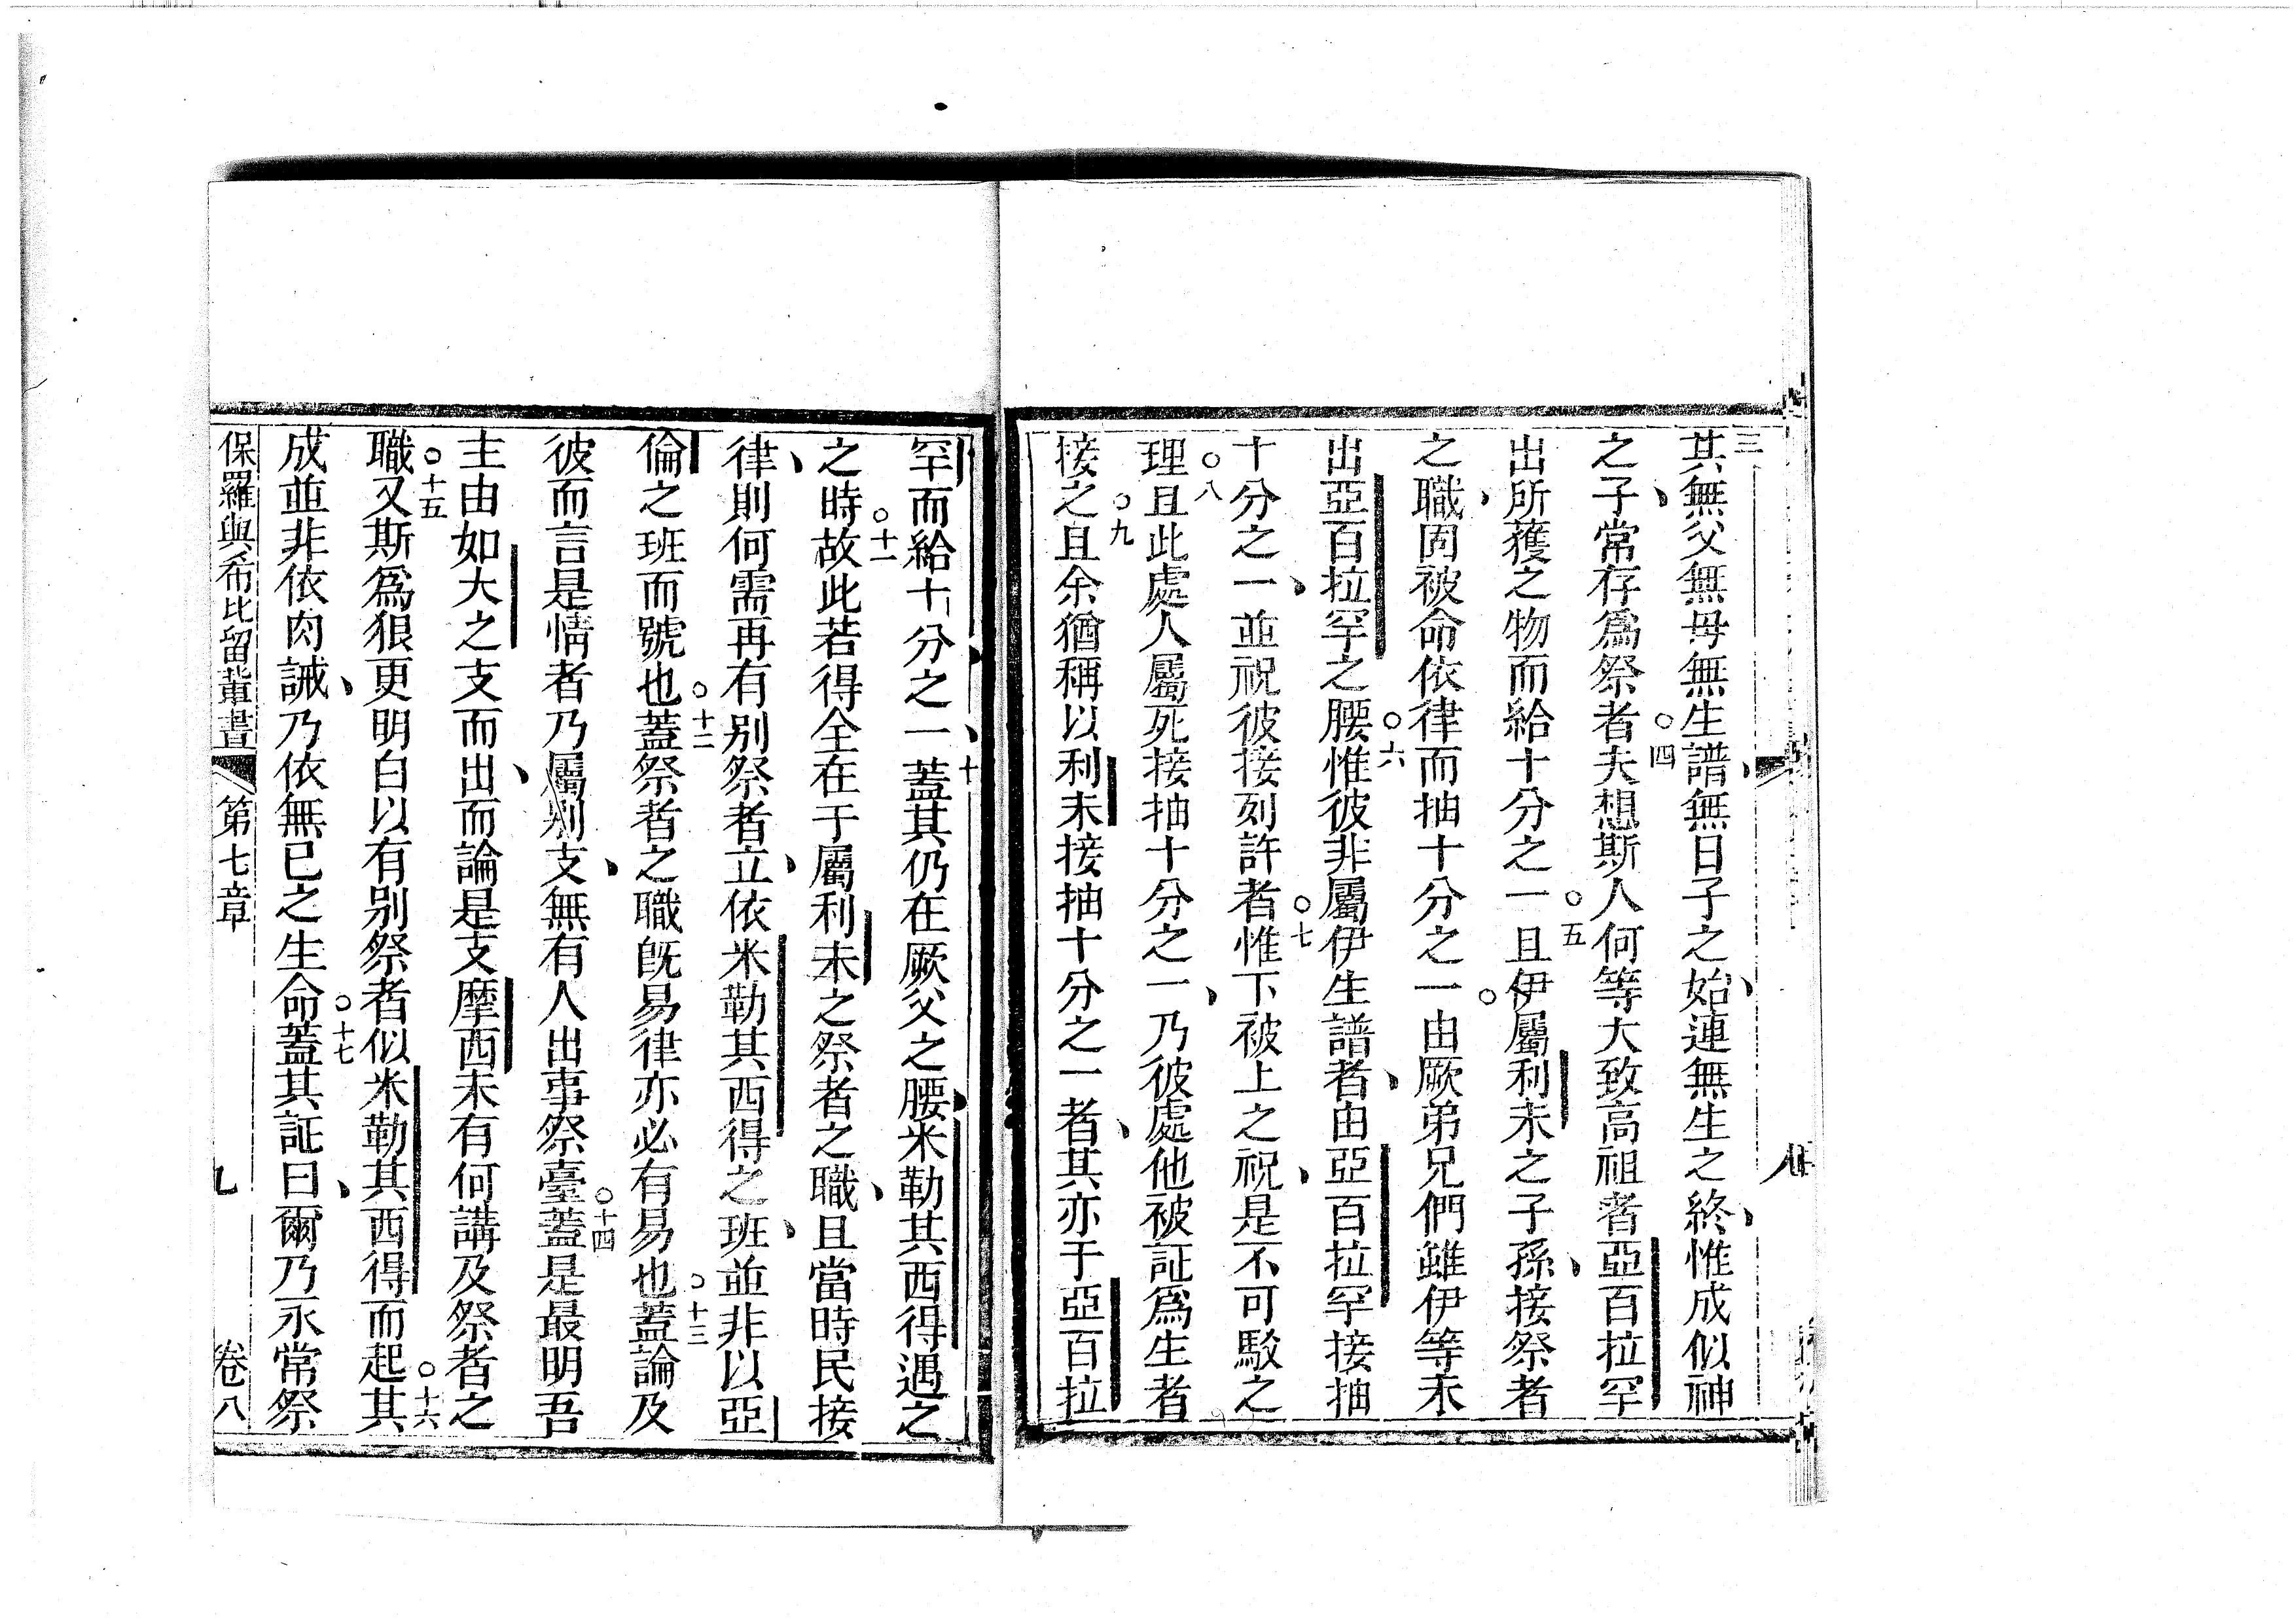 三其無父無母無生譜無日子之始連無生之終惟成似神
之子常存爲祭者○四夫想斯人何等大致高祖者亞百拉罕
出所獲之物而給十分之一○五且伊屬利未之子孫接祭者
之職固被命依律而抽十分之一○由厥弟兄們雖伊等未
出亞百拉罕之腰○六惟彼非屬伊生譜者由亞百拉罕接抽
十分之一並祝彼接列許者○七惟下被上之祝是不可駁之
理○八且此處人屬死接抽十分之一乃彼處他被証爲生者
接之○九且余猶稱以利未接抽十分之一者其亦于亞百拉
罕而給十分之一十蓋其仍在厥父之腰米勒其西得遇之
之時○十一故此若得全在于屬利未之祭者之職且當時民接
律則何需再有别祭者立依米勒其西得之班並非以亞
倫之班而號也○十二蓋祭者之職既易律亦必有易也○十三蓋論及
彼而言是情者乃屬别支無有人出事祭臺○十四蓋是最明吾
主由如大之支而出而論是支摩西未有何講及祭者之
職○十五又斯爲狠更明白以有别祭者似米勒其西得而起○十六其
成並非依肉誡乃依無已之生命○十七蓋其証曰爾乃永常祭
保羅與希比留輩書 第七章 九 卷八